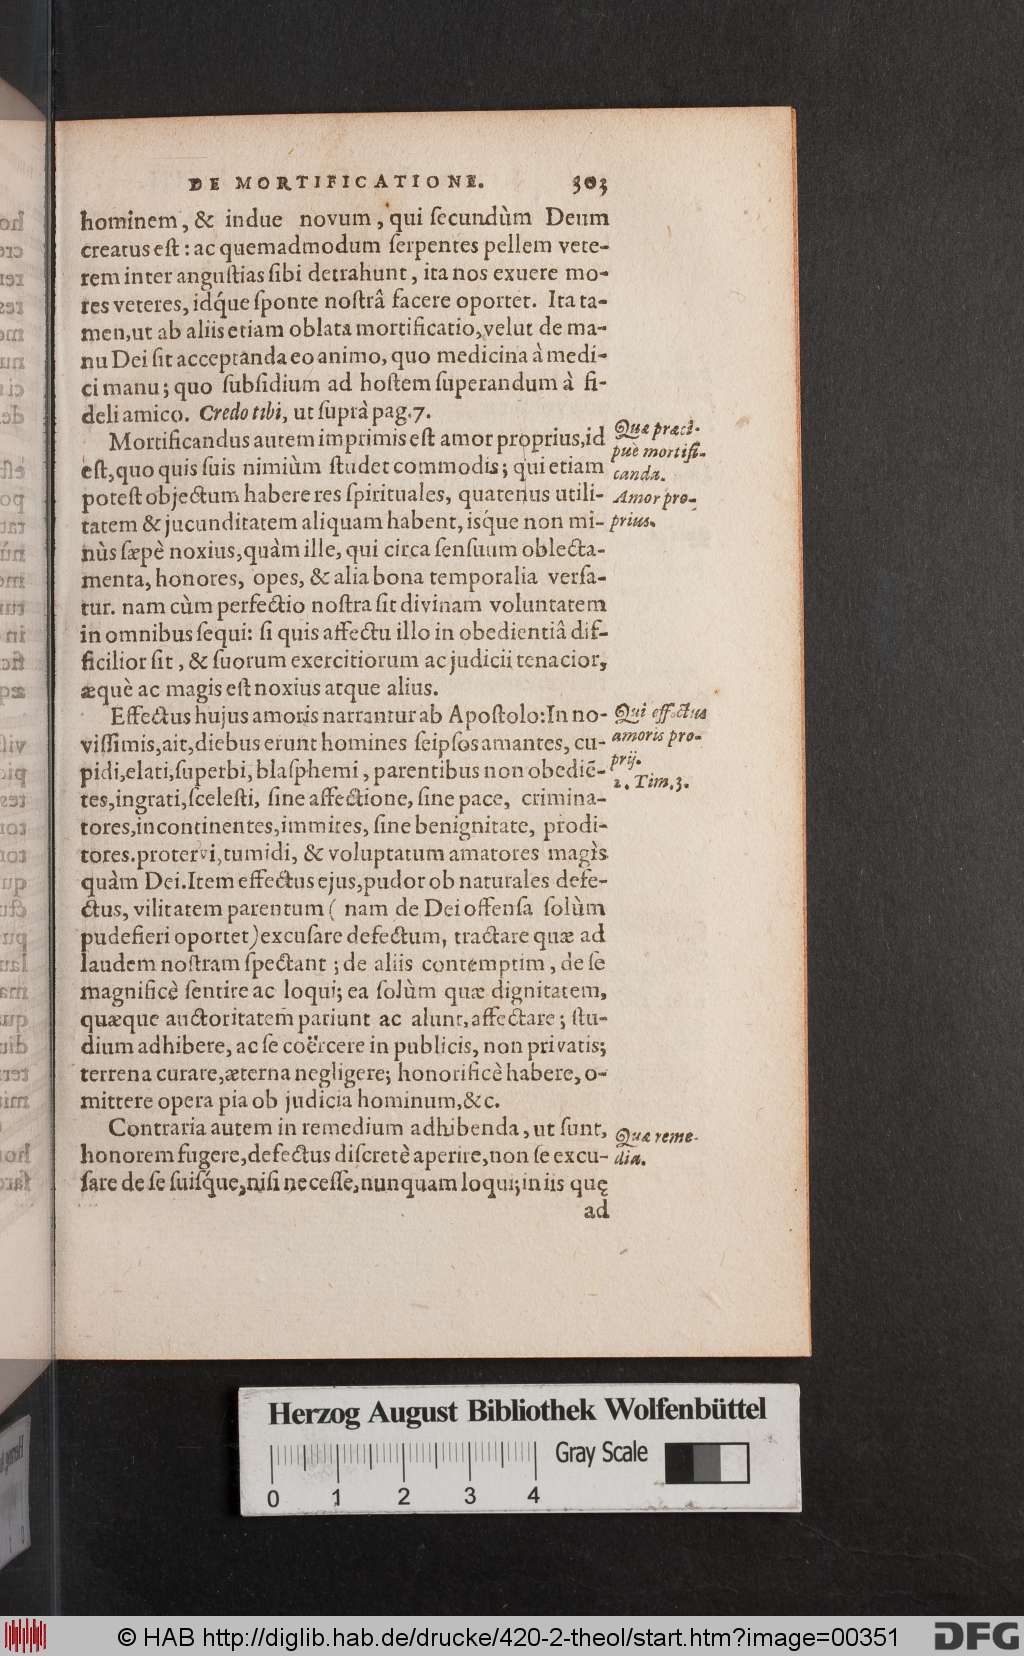 DE MORTIFICATIONE. 303
hominem, & indue novum, qui ſecundùm Deum
creatus eſt: ac quemadmodum ſerpentes pellem vete-
rem inter anguſtias ſibi detrahunt, ita nos exuere mo-
res veteres, idq́ue ſponte noſtrâ facere oportet. Ita ta-
men, ut ab aliis etiam oblata mortificatio, velut de ma-
nu Dei ſit acceptanda eo animo, quo medicina à medi-
ci manu; quo ſubſidium ad hoſtem ſuperandum à fi-
deli amico. Credo tibi, ut ſuprà pag. 7.
Mortificandus autem imprimis eſt amor proprius, id
eſt, quo quis ſuis nimiùm ſtudet commodis; qui etiam
poteſt objectum habere res ſpirituales, quatenus utili-
tatem & jucunditatem aliquam habent, isq́ue non mi-
nùs ſæpè noxius, quàm ille, qui circa ſenſuum oblecta-
menta, honores, opes, & alia bona temporalia verſa-
tur. nam cùm perfectio noſtra ſit divinam voluntatem
in omnibus ſequi: ſi quis affectu illo in obedientiâ dif-
ficilior ſit, & ſuorum exercitiorum ac judicii tenacior,
æquè ac magis eſt noxius atque alius.
Quæ præci-
puè mortifi-
canda.
Amor pro-
prius.
Effectus hujus amoris narrantur ab Apoſtolo: In no-
viſſimis, ait, diebus erunt homines ſeipſos amantes, cu-
pidi, elati, ſuperbi, blaſphemi, parentibus non obediē-
tes, ingrati, ſceleſti, ſine affectione, ſine pace, crimina-
tores, incontinentes, immites, ſine benignitate, prodi-
tores. protervi, tumidi, & voluptatum amatores magìs
quàm Dei. Item effectus ejus, pudor ob naturales defe-
ctus, vilitatem parentum ( nam de Dei offenſa ſolùm
pudefieri oportet) excuſare defectum, tractare quæ ad
laudem noſtram ſpectant; de aliis contemptim, de ſe
magnificè ſentire ac loqui; ea ſolùm quæ dignitatem,
quæque auctoritatem pariunt ac alunt, affectare; ſtu-
dium adhibere, ac ſe coërcere in publicis, non privatis;
terrena curare, æterna negligere; honorificè habere, o-
mittere opera pia ob judicia hominum, &c.
Qui effectus
amoris pro-
prij.
2. Tim. 3.
Contraria autem in remedium adhibenda, ut ſunt,
honorem fugere, defectus diſcretè aperire, non ſe excu-
ſare de ſe ſuiſq́ue, niſi neceſſe, nunquam loqui; in iis quę
Quæ reme-
dia.
ad
Herzog August Bibliothek Wolfenbüttel
Gray Scale
0 1 2 3 4
© HAB http://diglib.hab.de/drucke/420-2-theol/start.htm?image=00351
DFG